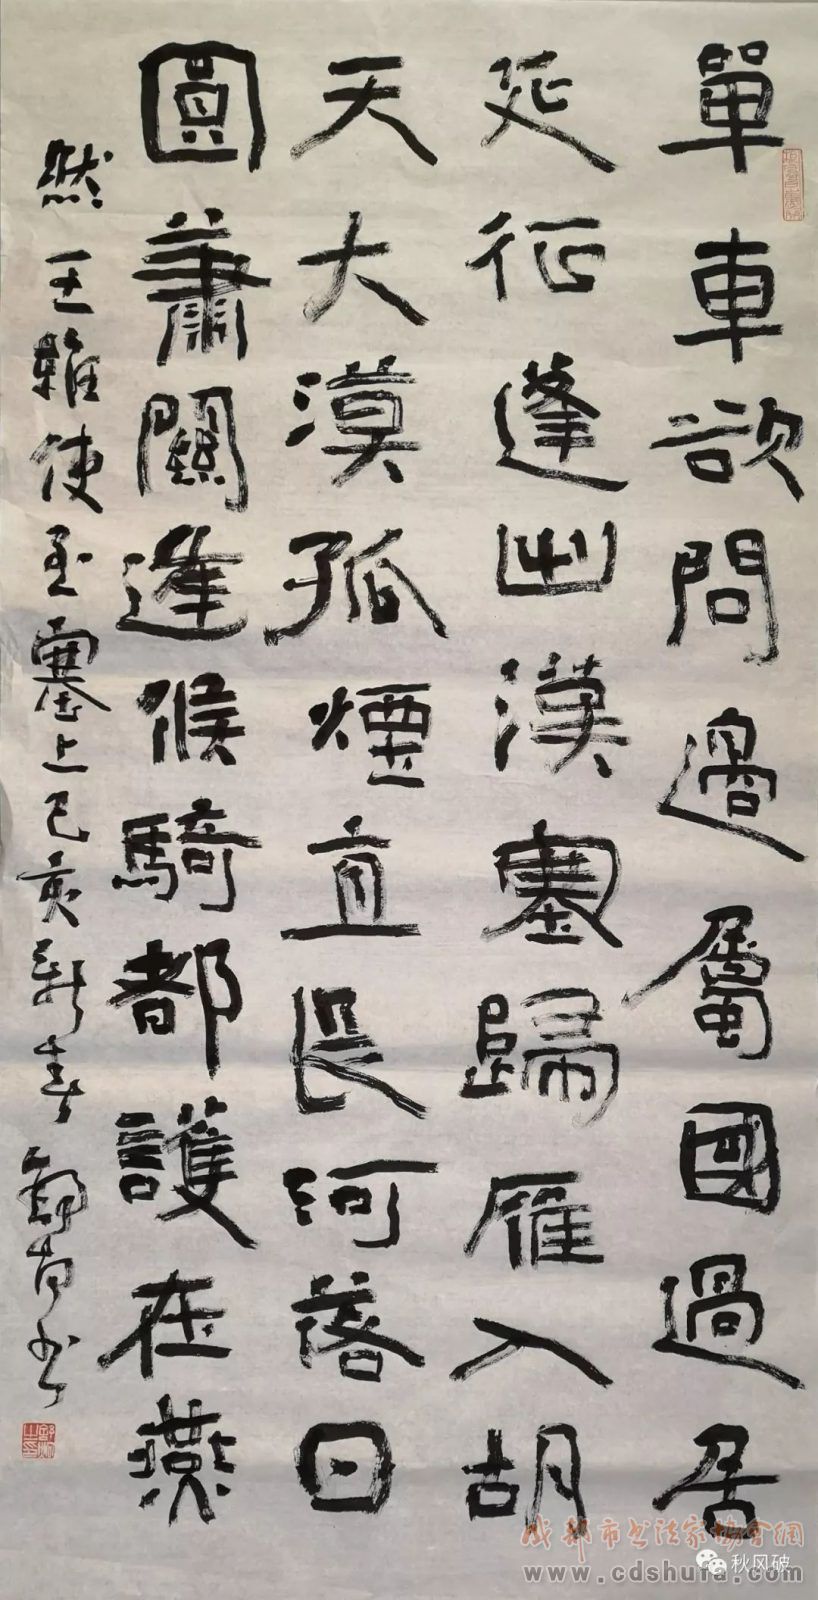 單車欲問邊屬國過居
延征蓬出漢塞歸雁入胡
天大漠孤煙直長河落日
圓蕭關逢候騎都護在燕
然王維使至塞上己亥新春
成都市书法家协会网
www.cdshufa.com
秋风破